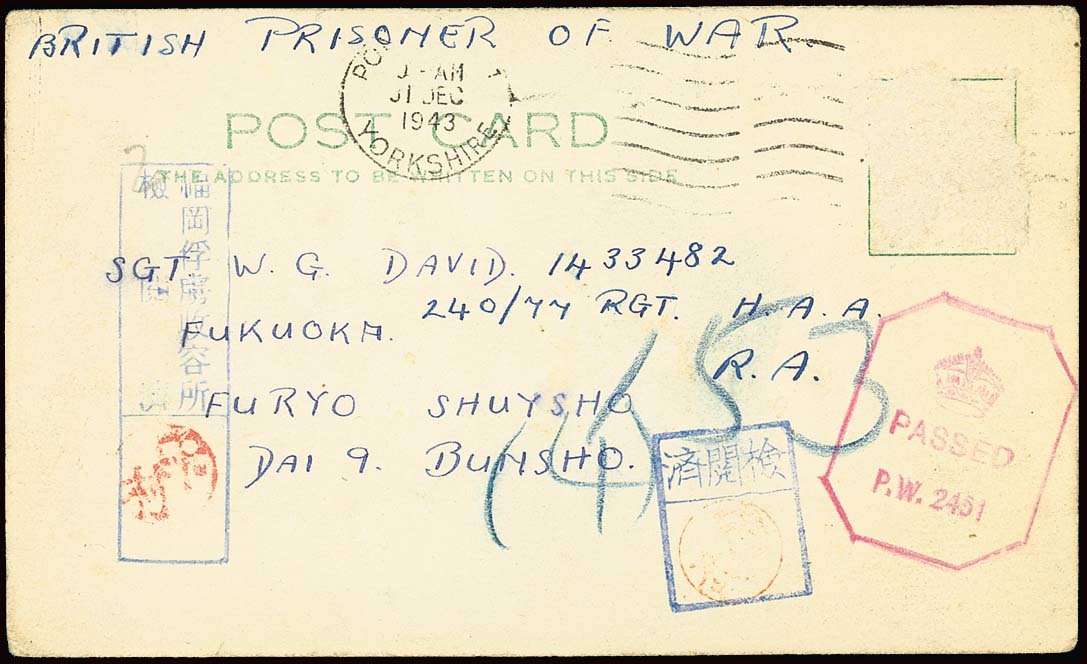 BRITISH PRISONER OF WAR.
AM
31 DEC
1943
YORKSHIRE
POST CARD
THE ADDRESS TO BE WRITTEN ON THIS SIDE
福岡俘虜收容所
檢閲済
SGT W. G. DAVID. 1433482
240/77 RGT. H. A. A.
FUKUOKA. R. A.
FURYO SHUYSHO
DAI 9. BUNSHO.
(453
済閲検
PASSED
P.W. 2451